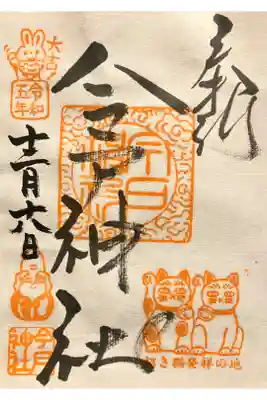 奉拝
今戸神社
令和
五年
十二月十六日
今戸
神社
招き猫発祥の地